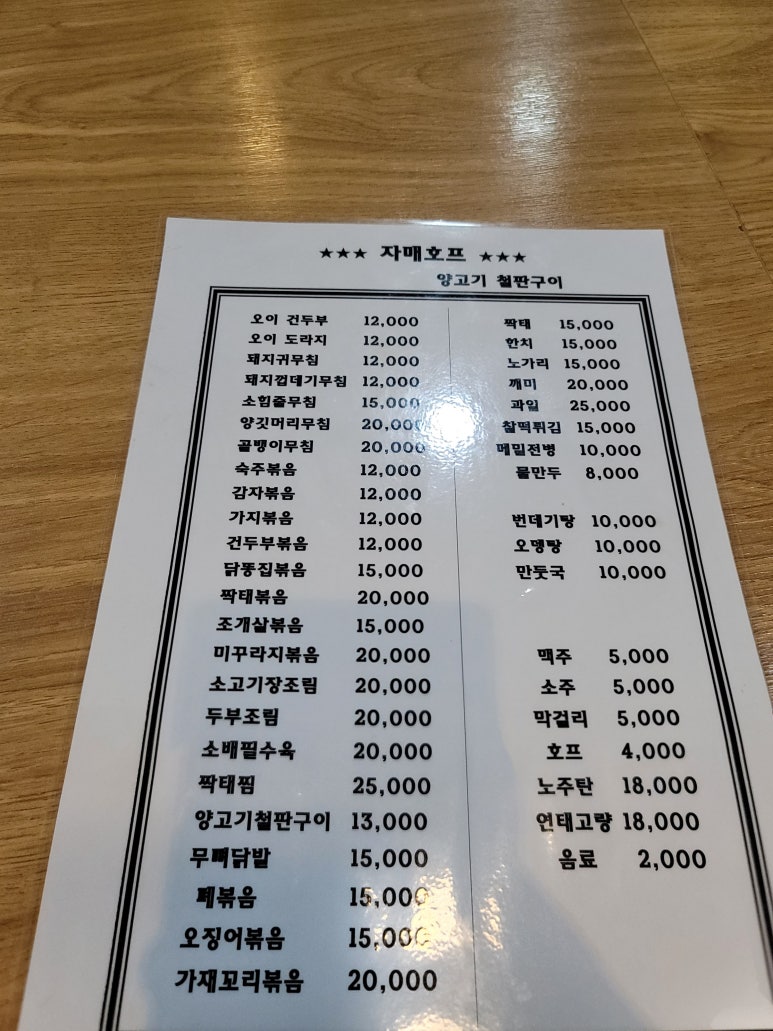 ★★★ 자매호프 ★★★
양고기 철판구이
오이 건두부 12,000
오이 도라지 12,000
돼지귀무침 12,000
돼지껍데기무침 12,000
소힘줄무침 15,000
양깃머리무침 20,000
골뱅이무침 20,000
숙주볶음 12,000
감자볶음 12,000
가지볶음 12,000
건두부볶음 12,000
닭똥집볶음 15,000
짝태볶음 20,000
조개살볶음 15,000
미꾸라지볶음 20,000
소고기장조림 20,000
두부조림 20,000
소배필수육 20,000
짝태찜 25,000
양고기철판구이 13,000
무뼈닭발 15,000
폐볶음 15,000
오징어볶음 15,000
가재꼬리볶음 20,000
짝태 15,000
한치 15,000
노가리 15,000
깨미 20,000
과일 25,000
찰떡튀김 15,000
메밀전병 10,000
물만두 8,000
번데기탕 10,000
오뎅탕 10,000
만둣국 10,000
맥주 5,000
소주 5,000
막걸리 5,000
호프 4,000
노주탄 18,000
연태고량 18,000
음료 2,000